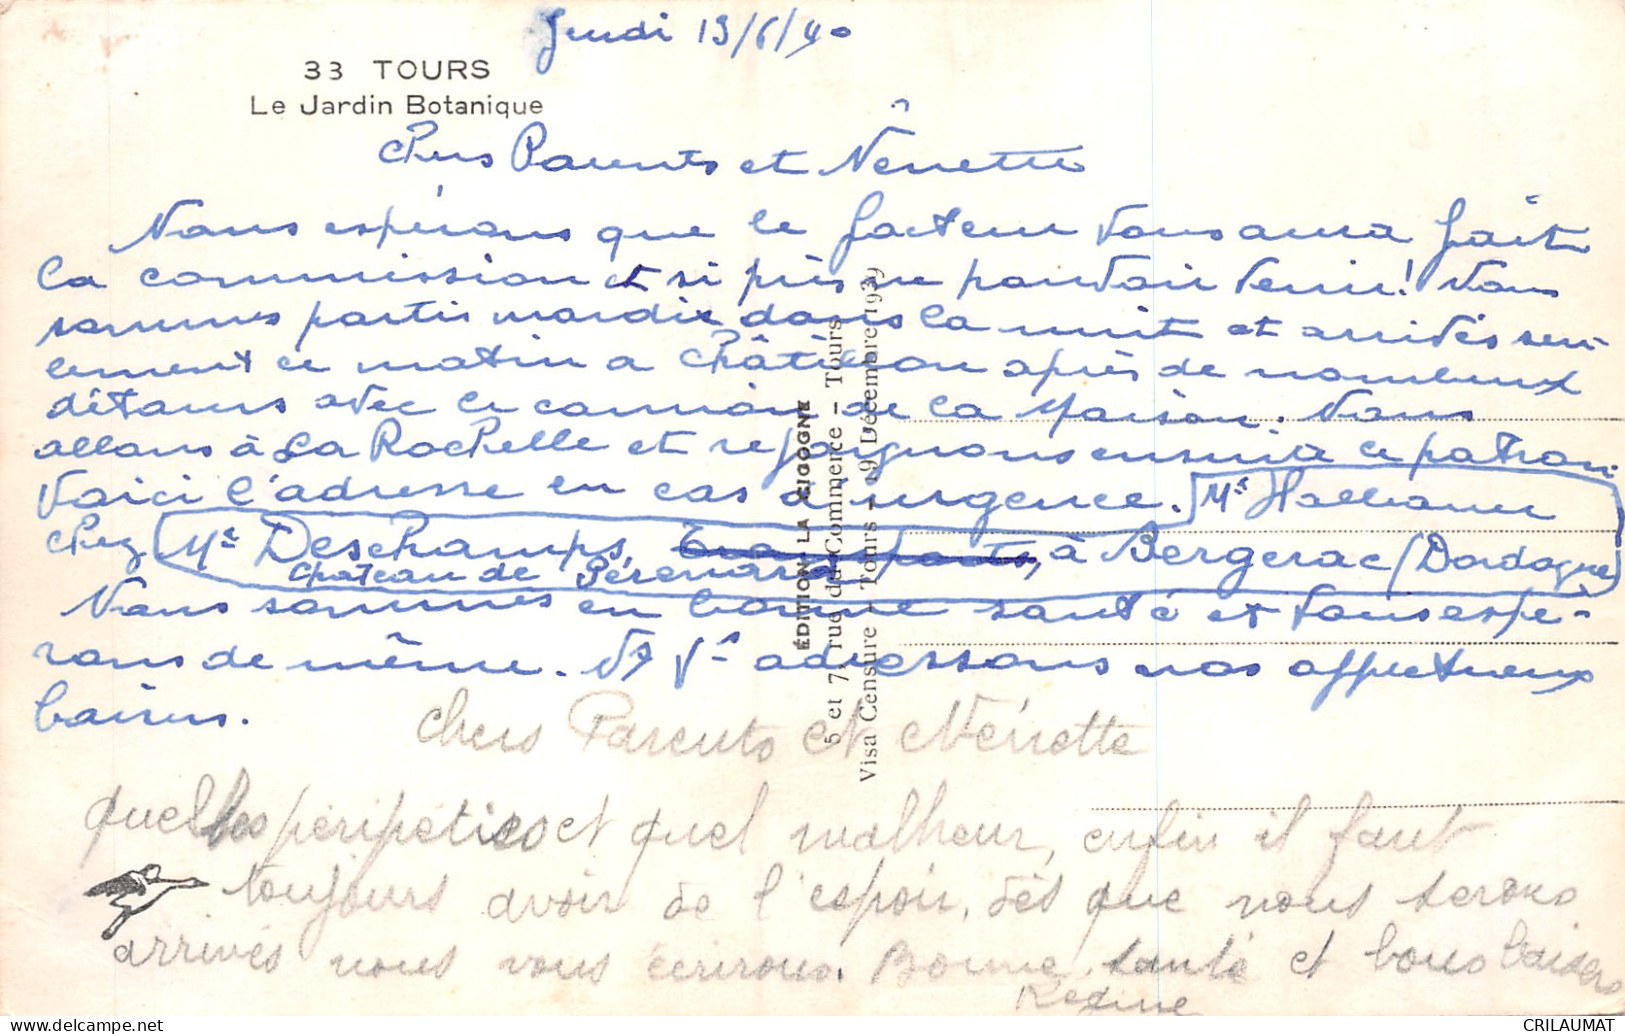 Jeudi 13/6/40
33 TOURS
Le Jardin Botanique
Chers Parents et Nénette
Nous espérons que le facteur vous aura fait
la commission et si près ne pouvoir venir! Nous
sommes partis mardi dans la nuit et arrivés seu-
lement ce matin a Châtillon après de nombreux
détours avec le camion de la Maison. Nous
allons à La Rochelle et rejoignons ensuite ce patron.
Voici l'adresse en cas d'urgence. Mr
chez Mr Deschamps, à Bergerac (Dordogne)
Chateau de
Nous sommes en bonne santé et vous espé-
rons de même. Ns Vs adressons nos affectueux
baisers.
Chers Parents et Nénette
quelles péripéties et quel malheur, enfin il faut
toujours avoir de l'espoir, dès que nous serons
arrivés nous vous écrirons. Bonne santé et bons baisers
Regine
ÉDITION LA CIGOGNE
5 et 7, rue du Commerce - Tours
Visa Censure - Tours - 19 Décembre 1939
CRILAUMAT